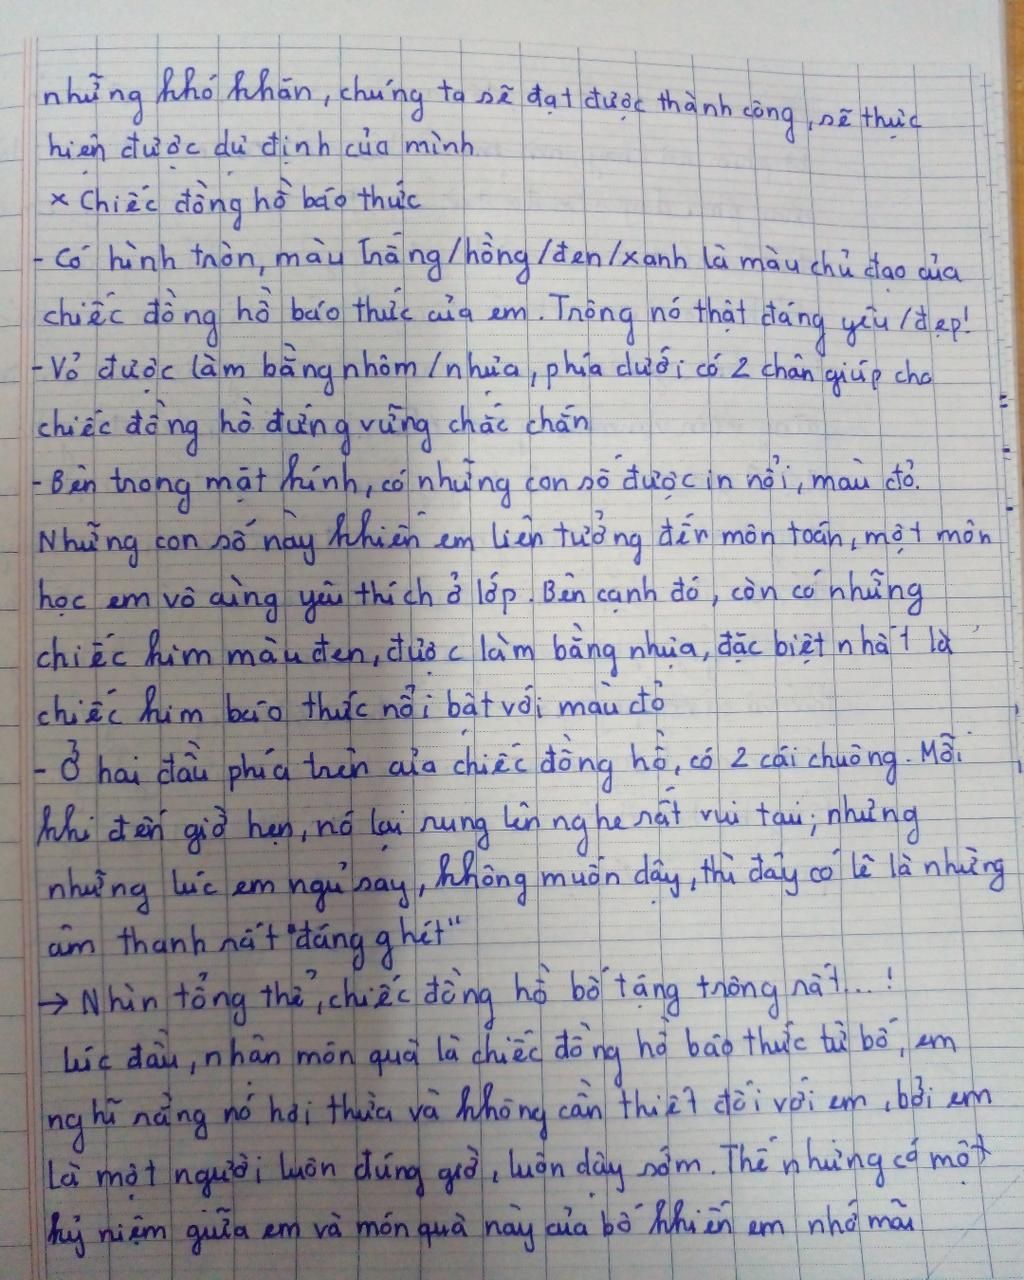 những khó khăn, chúng ta sẽ đạt được thành công, sẽ thực
hiện được dự định của mình
x Chiếc đồng hồ báo thức
- Có hình tròn, màu trắng/hồng/đen/xanh là màu chủ đạo của
chiếc đồng hồ báo thức của em. Trông nó thật đáng yêu/đẹp!
- Vỏ được làm bằng nhôm/nhựa, phía dưới có 2 chân giúp cho
chiếc đồng hồ đứng vững chắc chắn
- Bên trong mặt kính, có những con số được in nổi, màu đỏ.
Những con số này khiến em liên tưởng đến môn toán, một môn
học em vô cùng yêu thích ở lớp. Bên cạnh đó, còn có những
chiếc kim màu đen, được làm bằng nhựa, đặc biệt nhất là
chiếc kim báo thức nổi bật với màu đỏ
- Ở hai đầu phía trên của chiếc đồng hồ, có 2 cái chuông. Mỗi
khi đến giờ hẹn, nó lại rung lên nghe rất vui tai; nhưng
những lúc em ngủ say, không muốn dậy, thì đấy có lẽ là những
âm thanh rất "đáng ghét"
→ Nhìn tổng thể, chiếc đồng hồ bố tặng trông rất...!
Lúc đầu, nhận món quà là chiếc đồng hồ báo thức từ bố, em
nghĩ rằng nó hơi thừa và không cần thiết đối với em, bởi em
là một người luôn đúng giờ, luôn dậy sớm. Thế nhưng có một
kỷ niệm giữa em và món quà này của bố khiến em nhớ mãi